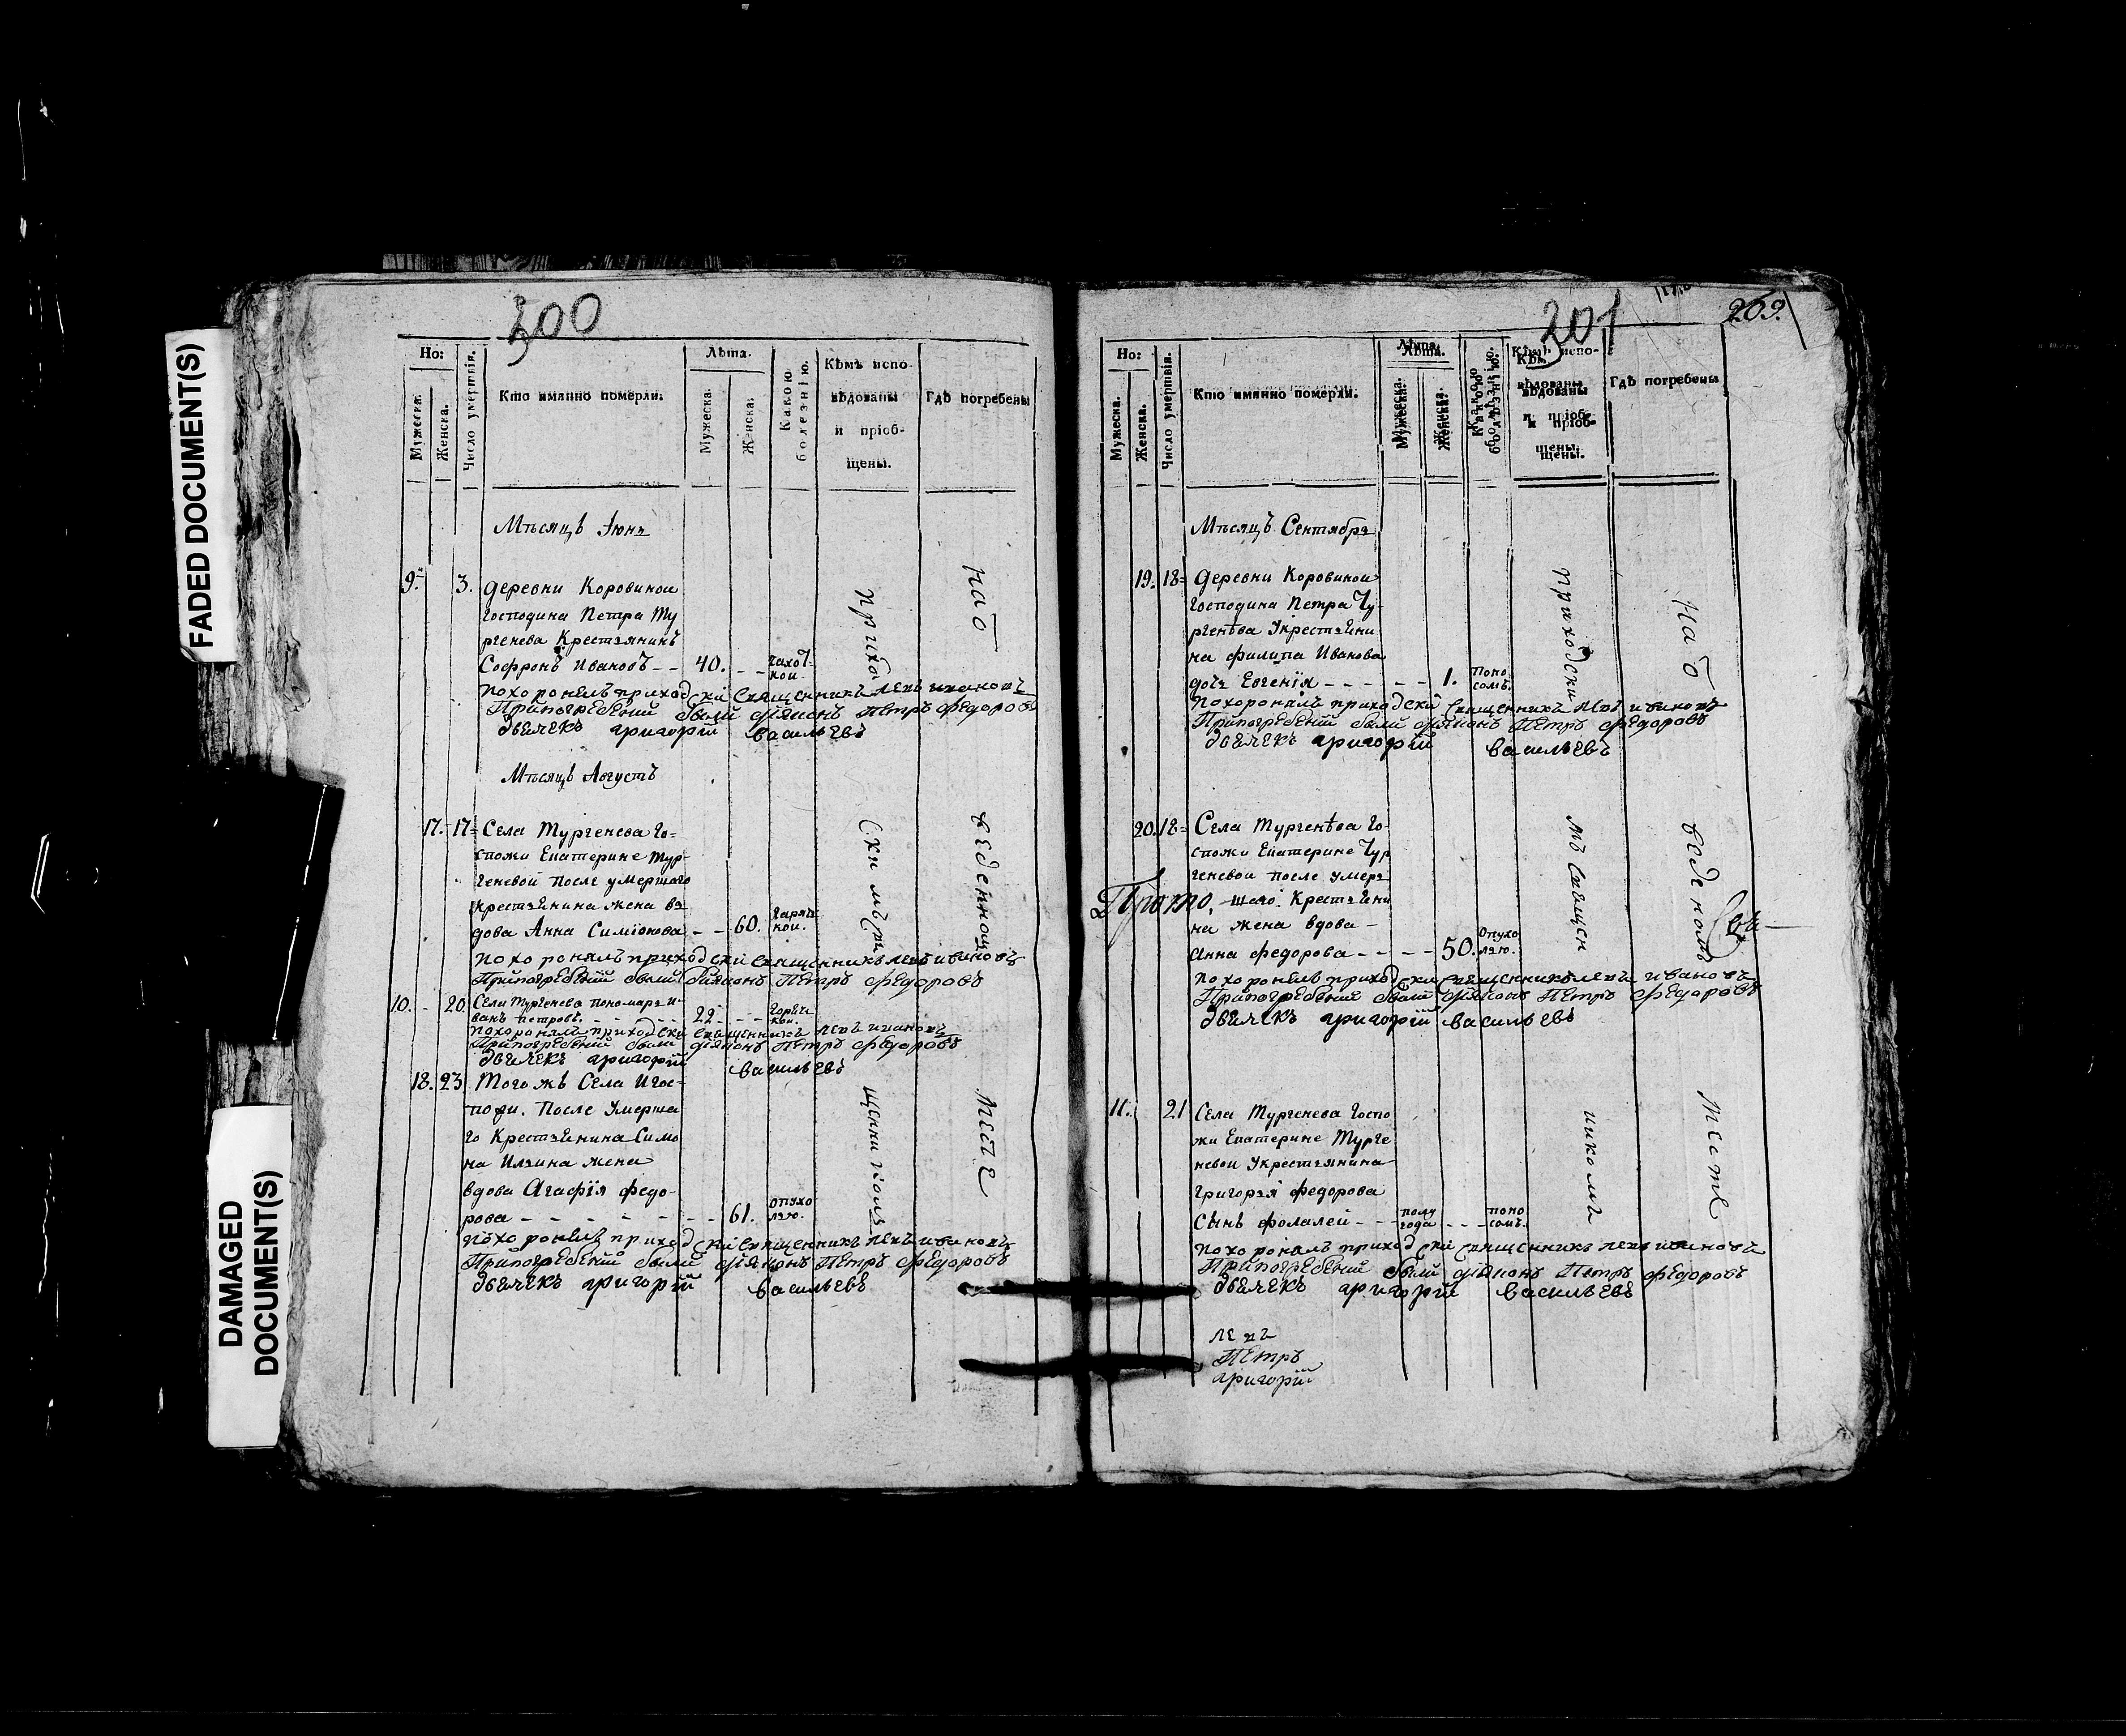 FADED DOCUMENT(S)
DAMAGED
DOCUMENT(S)
300
Но:
Мужеска.
Женска.
Число умертвія.
Кто имянно померли.
Лѣта.
Мужеска.
Женска.
Какою
болезнію.
Кѣмъ испо-
вѣдованы
и пріоб-
щены.
Гдѣ погребены
Мѣсяцъ Іюнь
9. 3. деревни Коровиной
господина Петра Ту
ргенева Крестьянинъ
Софронъ Ивановъ - - 40. - -
похоронилъ приходскій священникъ левъ ивановъ
При погребеніи были діяконъ Петръ Федоровъ
дьячекъ григорій васильевъ
Мѣсяцъ Августъ
17. 17 Села Тургенева Го-
спожи Екатерине Тур-
геневой после умершаго
крестьянина жена в
дова Анна Симіонова - - 60. горяч
кои.
похоронилъ приходскій священникъ левъ ивановъ
При погребеніи были діяконъ Петръ Федоровъ
10. - 20. Села Тургенева пономарь и-
ванъ петровъ. - - - 22 - - - горяч
кои.
похоронилъ приходскій священникъ левъ ивановъ
При погребеніи были діяконъ Петръ Федоровъ
дьячекъ григорій васильевъ
18. 23 Того жъ Села и гос-
пожи. После Умерша
го Крестьянина Симо
на Ильина жена
вдова Агафія федо-
рова - - - - - - 61. опухо
лью.
похоронилъ приходскій священникъ левъ ивановъ
При погребеніи были діяконъ Петръ Федоровъ
дьячекъ григорій васильевъ
приход
скимъ
священникомъ
На о
веденном
месте
201
209.
Но:
Мужеска.
Женска.
Число умертвія.
Кто имянно померли.
Лѣта.
Мужеска.
Женска.
Какою
болѣзнію.
Кѣмъ испо-
вѣдованы
и пріоб-
щены.
Гдѣ погребены
Мѣсяцъ Сентябрь
19. 18 Деревни Коровиной
господина Петра Ту-
ргенѣва У крестьяни
на филипа Иванова
дочь Евгенія - - - - - 1. поно
сомъ.
похоронилъ приходскій священникъ левъ ивановъ
При погребеніи были діяконъ Петръ Федоровъ
дьячекъ григорій васильевъ
20. 18 Села Тургенѣва Го-
спожи Екатерине Тур
геневой после умер
шаго Крестьяни
на жена вдова -
Анна федорова - - - - 50. опухо
лью.
похоронилъ приходскій священникъ левъ ивановъ
При погребеніи были діяконъ Петръ Федоровъ
дьячекъ григорій васильевъ
11. 21 Села Тургенева Госпо
жи Екатерине Турге
невой У крестьянина
григорья федорова
Сынъ фолалей - - полу
года - - - поно
сомъ.
похоронилъ приходскій священникъ левъ ивановъ
При погребеніи были діяконъ Петръ Федоровъ
дьячекъ григорій васильевъ
левъ
Петръ
григорій
приходски
мъ священ
никомъ
На о
веденомъ
месте
Прото